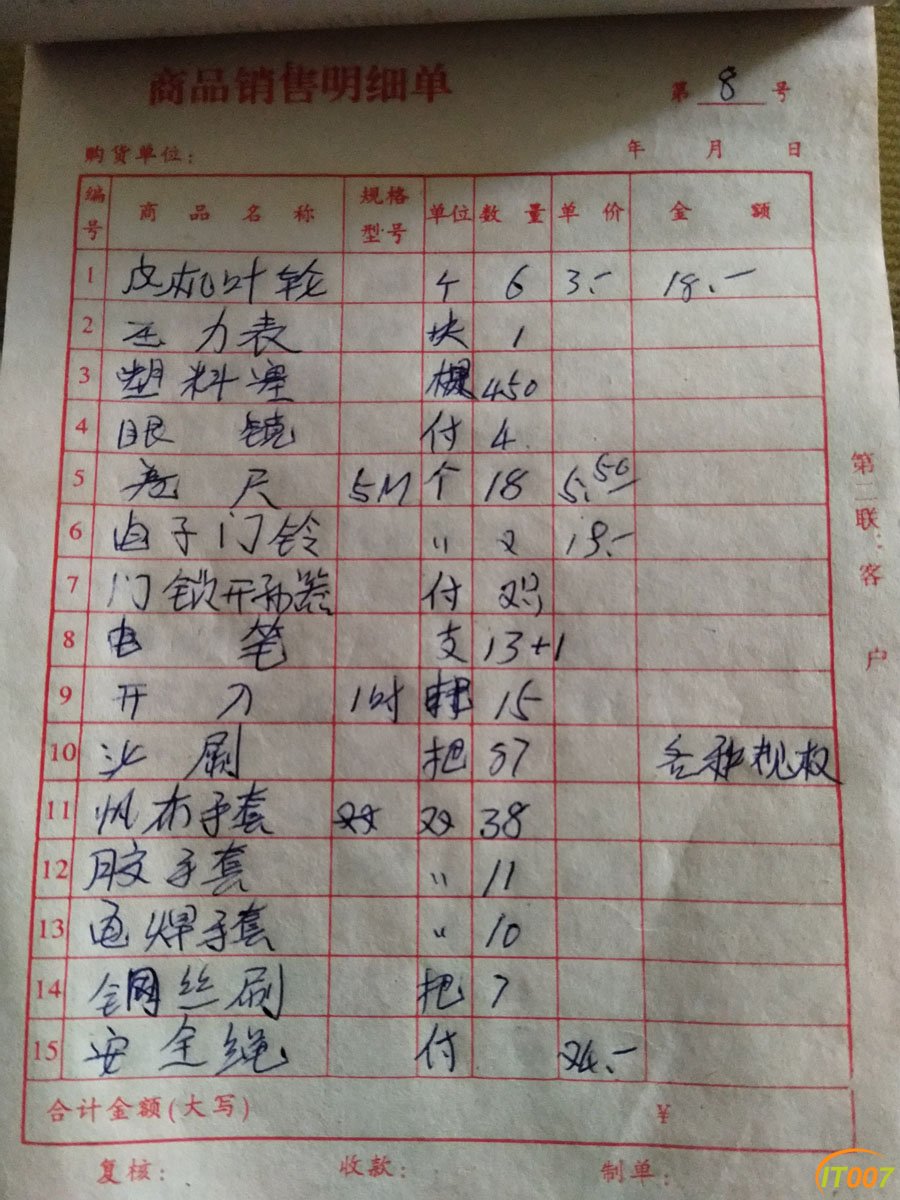 商品销售明细单
第 8 号
购货单位: 年 月 日
编号 商品名称 规格型号 单位 数量 单价 金额
1 叶轮 个 6 3.- 18.-
2 压力表 块 1
3 塑料 450
4 眼镜 付 4
5 卷尺 5M 个 18 5.50
6 电子门铃 〃 2 19.-
7 门锁开孔器 付
8 电笔 支 13+1
9 开刀 1吋 把 15
10 沙刷 把 87 各种规格
11 帆布手套 双 38
12 胶手套 〃 11
13 电焊手套 〃 10
14 钢丝刷 把 7
15 安全绳 付 24.-
合计金额(大写) ¥
复核: 收款: 制单:
第二联:客户
IT007